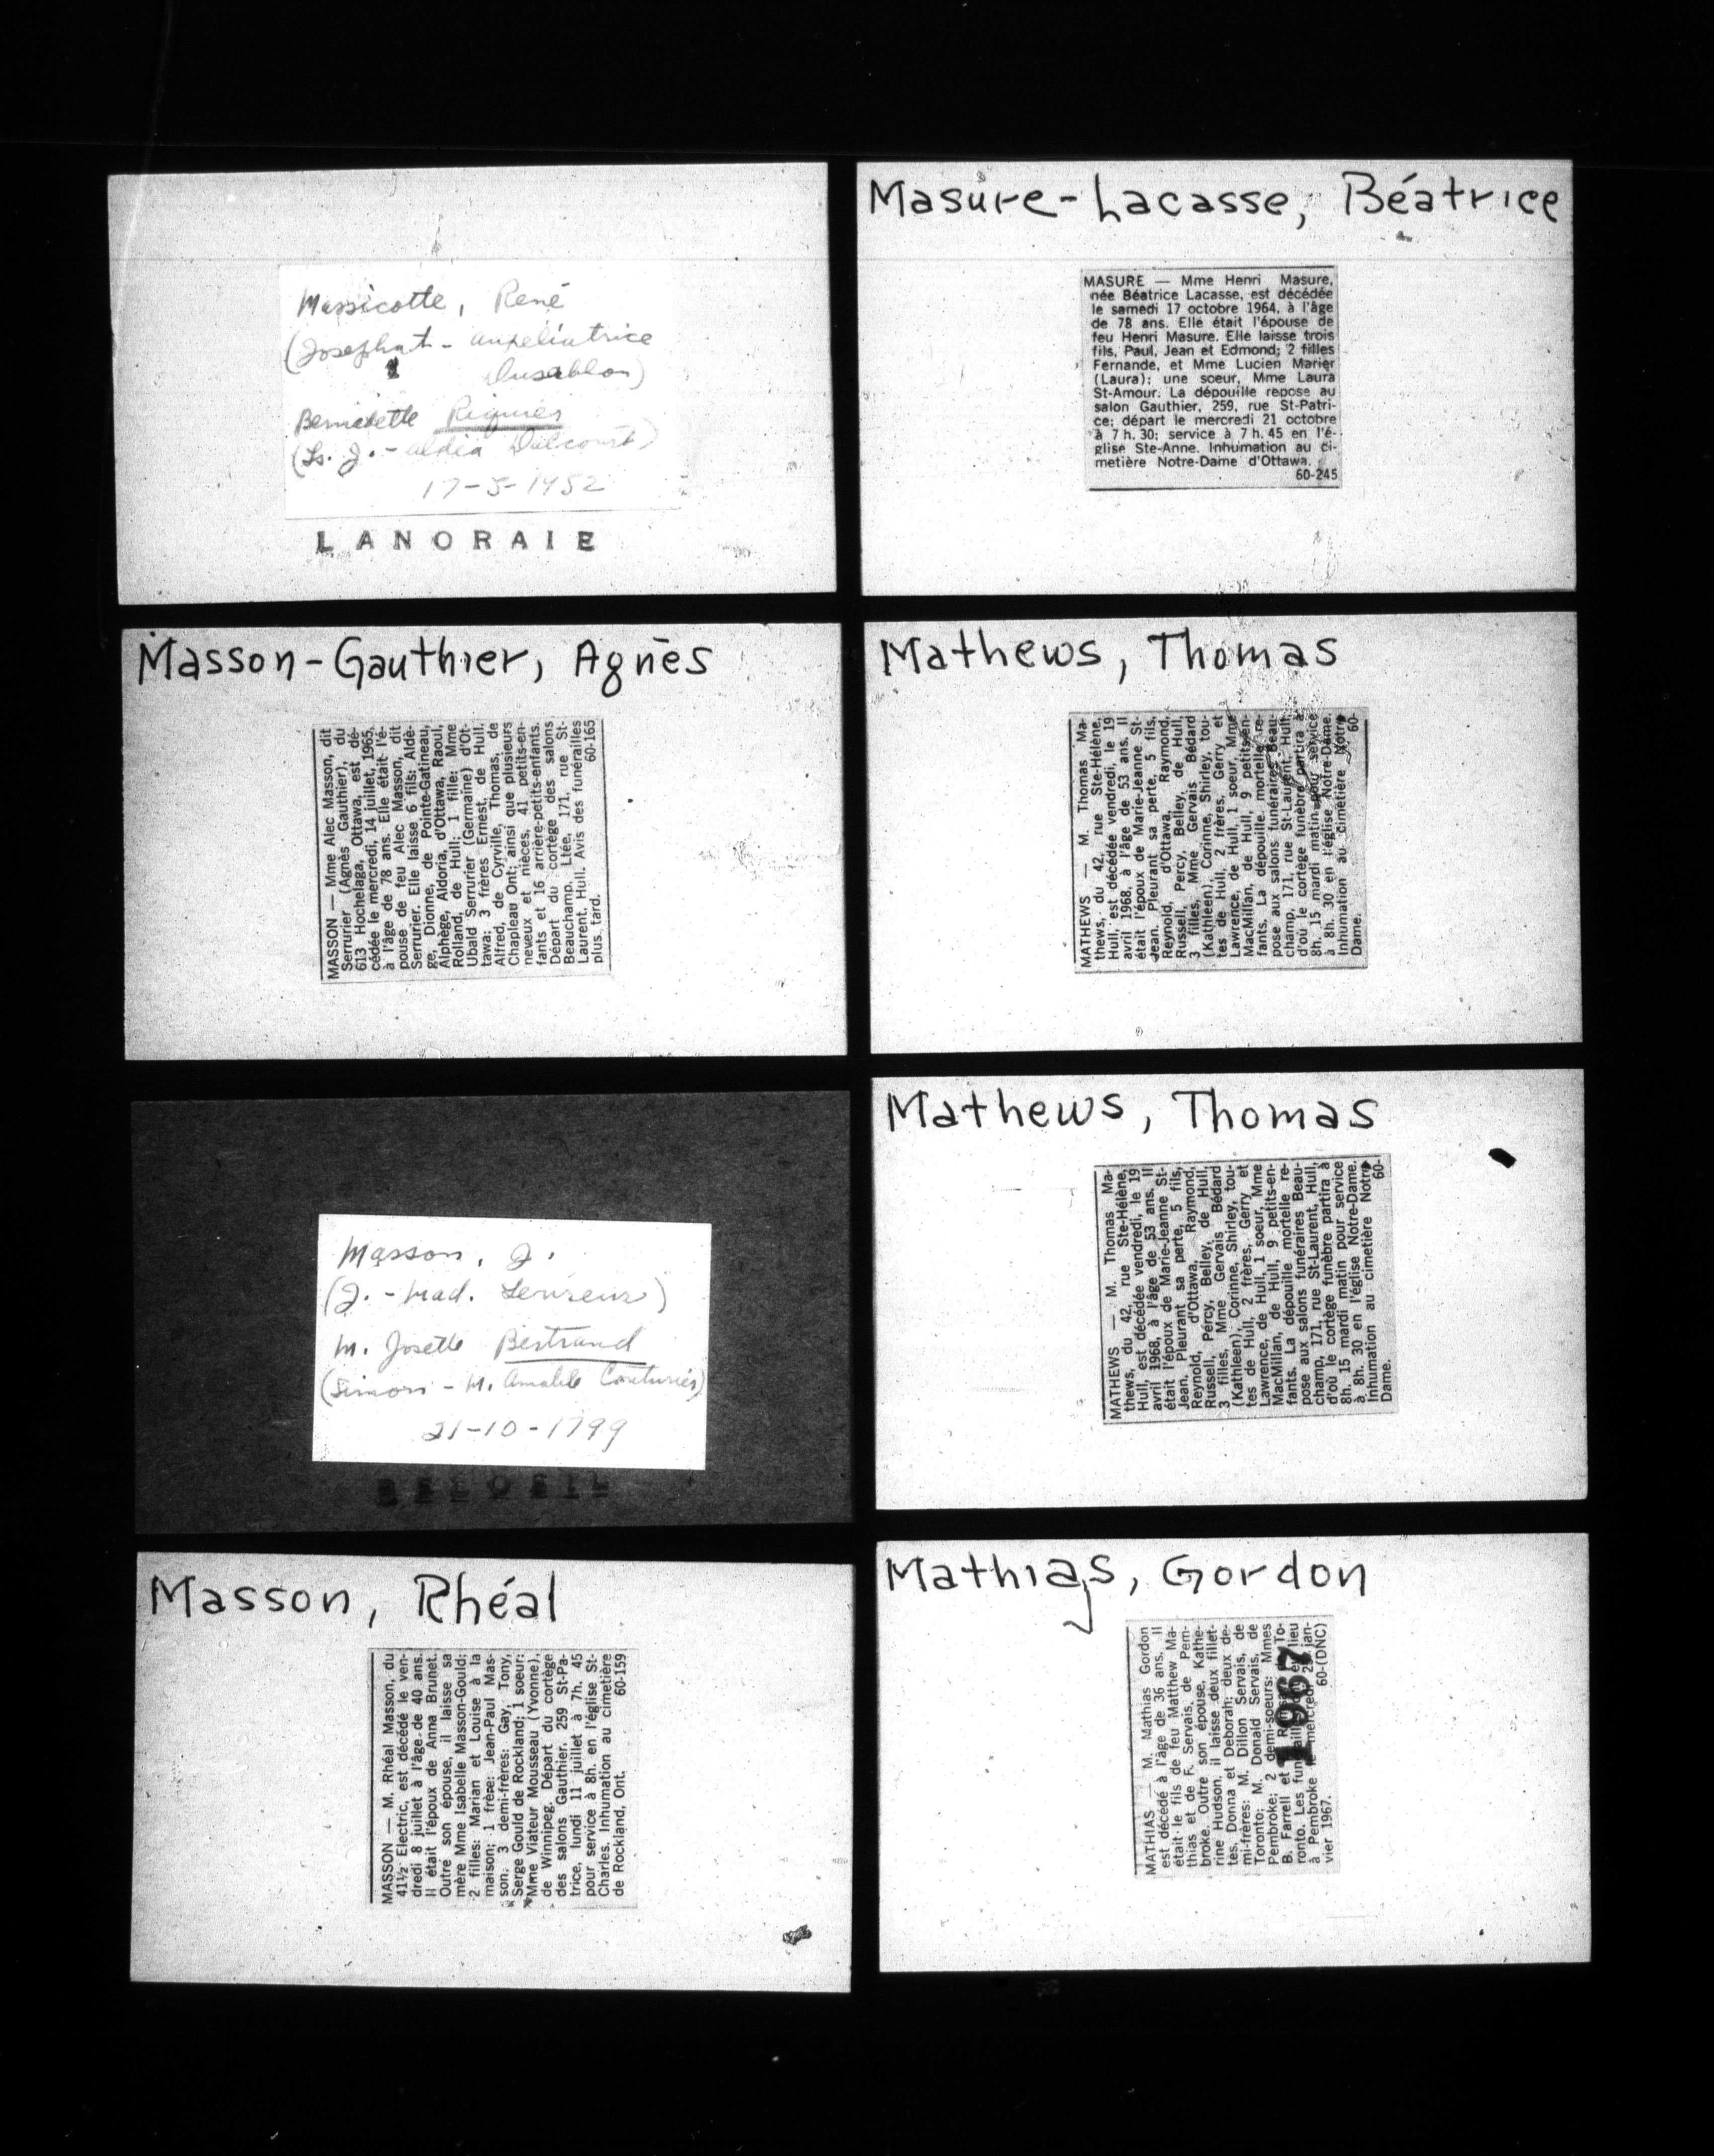 Massicotte, René
(Josephat - Aupeliatrice
Dusablon)
Bernadette
(Ls. J. - Aldéa Dulcourt)
17-5-1952
LANORAIE
Masson-Gauthier, Agnès
MASSON — Mme Alec Masson, dit
Serrurier (Agnès Gauthier), du
613 Hochelaga, Ottawa, est dé-
cédée le mercredi, 14 juillet, 1965,
à l'âge de 78 ans. Elle était l'é-
pouse de feu Alec Masson, dit
Serrurier. Elle laisse 6 fils: Aldè-
ge, Dionne, de Pointe-Gatineau,
Alphège, Aldoria, d'Ottawa, Raoul,
Rolland, de Hull; 1 fille: Mme
Ubald Serrurier (Germaine) d'Ot-
tawa; 3 frères Ernest, de Hull,
Alfred, de Cyrville, Thomas, de
Chapleau Ont; ainsi que plusieurs
neveux et nièces, 41 petits-en-
fants et 16 arrière-petits-enfants.
Départ du cortège des salons
Beauchamp, Ltée, 171, rue St-
Laurent, Hull. Avis des funérailles
plus tard. 60-165
Masson, J.
(J. - Mad. Levreur)
M. Josette Bertrand
(Simon - M. Amable Couturier)
21-10-1799
BELOEIL
Masson, Rhéal
MASSON — M. Rhéal Masson, du
41½ Electric, est décédé le ven-
dredi 8 juillet à l'âge de 40 ans.
Il était l'époux de Anna Brunet.
Outre son épouse, il laisse sa
mère Mme Isabelle Masson-Gould;
2 filles: Marian et Louise à la
maison; 1 frère: Jean-Paul Mas-
son; 3 demi-frères: Gay, Tony,
Serge Gould de Rockland; 1 soeur:
Mme Viateur Mousseau (Yvonne),
de Winnipeg. Départ du cortège
des salons Gauthier. 259 St-Pa-
trice, lundi 11 juillet à 7h. 45
pour service à 8h. en l'église St-
Charles. Inhumation au cimetière
de Rockland, Ont. 60-159
Masure-Lacasse, Béatrice
MASURE — Mme Henri Masure,
née Béatrice Lacasse, est décédée
le samedi 17 octobre 1964, à l'âge
de 78 ans. Elle était l'épouse de
feu Henri Masure. Elle laisse trois
fils, Paul, Jean et Edmond; 2 filles
Fernande, et Mme Lucien Marier
(Laura); une soeur, Mme Laura
St-Amour. La dépouille repose au
salon Gauthier, 259, rue St-Patri-
ce; départ le mercredi 21 octobre
à 7 h. 30; service à 7 h. 45 en l'é-
glise Ste-Anne. Inhumation au ci-
metière Notre-Dame d'Ottawa.
60-245
Mathews, Thomas
MATHEWS — M. Thomas Ma-
thews, du 42, rue Ste-Hélène,
Hull, est décédée vendredi, le 19
avril 1968, à l'âge de 53 ans. Il
était l'époux de Marie-Jeanne St-
Jean. Pleurant sa perte, 5 fils,
Reynold, d'Ottawa, Raymond,
Russell, Percy, Belley, de Hull,
3 filles, Mme Gervais Bédard
(Kathleen), Corinne, Shirley, tou-
tes de Hull, 2 frères, Gerry et
Lawrence, de Hull, 1 soeur, Mme
MacMillan, de Hull, 9 petits-en-
fants. La dépouille mortelle re-
pose aux salons funéraires Beau-
champ, 171, rue St-Laurent, Hull,
d'où le cortège funèbre partira à
8h. 15 mardi matin pour service
à 8h. 30 en l'église Notre-Dame.
Inhumation au cimetière Notre
Dame. 60-
Mathews, Thomas
MATHEWS — M. Thomas Ma-
thews, du 42, rue Ste-Hélène,
Hull, est décédée vendredi, le 19
avril 1968, à l'âge de 53 ans. Il
était l'époux de Marie-Jeanne St-
Jean. Pleurant sa perte, 5 fils,
Reynold, d'Ottawa, Raymond,
Russell, Percy, Belley, de Hull,
3 filles, Mme Gervais Bédard
(Kathleen), Corinne, Shirley, tou-
tes de Hull, 2 frères, Gerry et
Lawrence, de Hull, 1 soeur, Mme
MacMillan, de Hull, 9 petits-en-
fants. La dépouille mortelle re-
pose aux salons funéraires Beau-
champ, 171, rue St-Laurent, Hull,
d'où le cortège funèbre partira à
8h. 15 mardi matin pour service
à 8h. 30 en l'église Notre-Dame.
Inhumation au cimetière Notre
Dame. 60-
Mathias, Gordon
MATHIAS — M. Mathias Gordon
est décédé à l'âge de 36 ans. Il
était le fils de feu Matthew Ma-
thias et de F. Servais, de Pem-
broke. Outre son épouse, Kathe-
rine Hudson, il laisse deux fillet-
tes, Donna et Deborah; deux de-
mi-frères: M. Dillon Servais, de
Toronto; M. Donald Servais, de
Pembroke; 2 demi-soeurs: Mmes
B. Farrell et To-
ronto. Les funérailles lieu
à Pembroke le mercredi 25 jan-
vier 1967. 60-(DNC)
1967